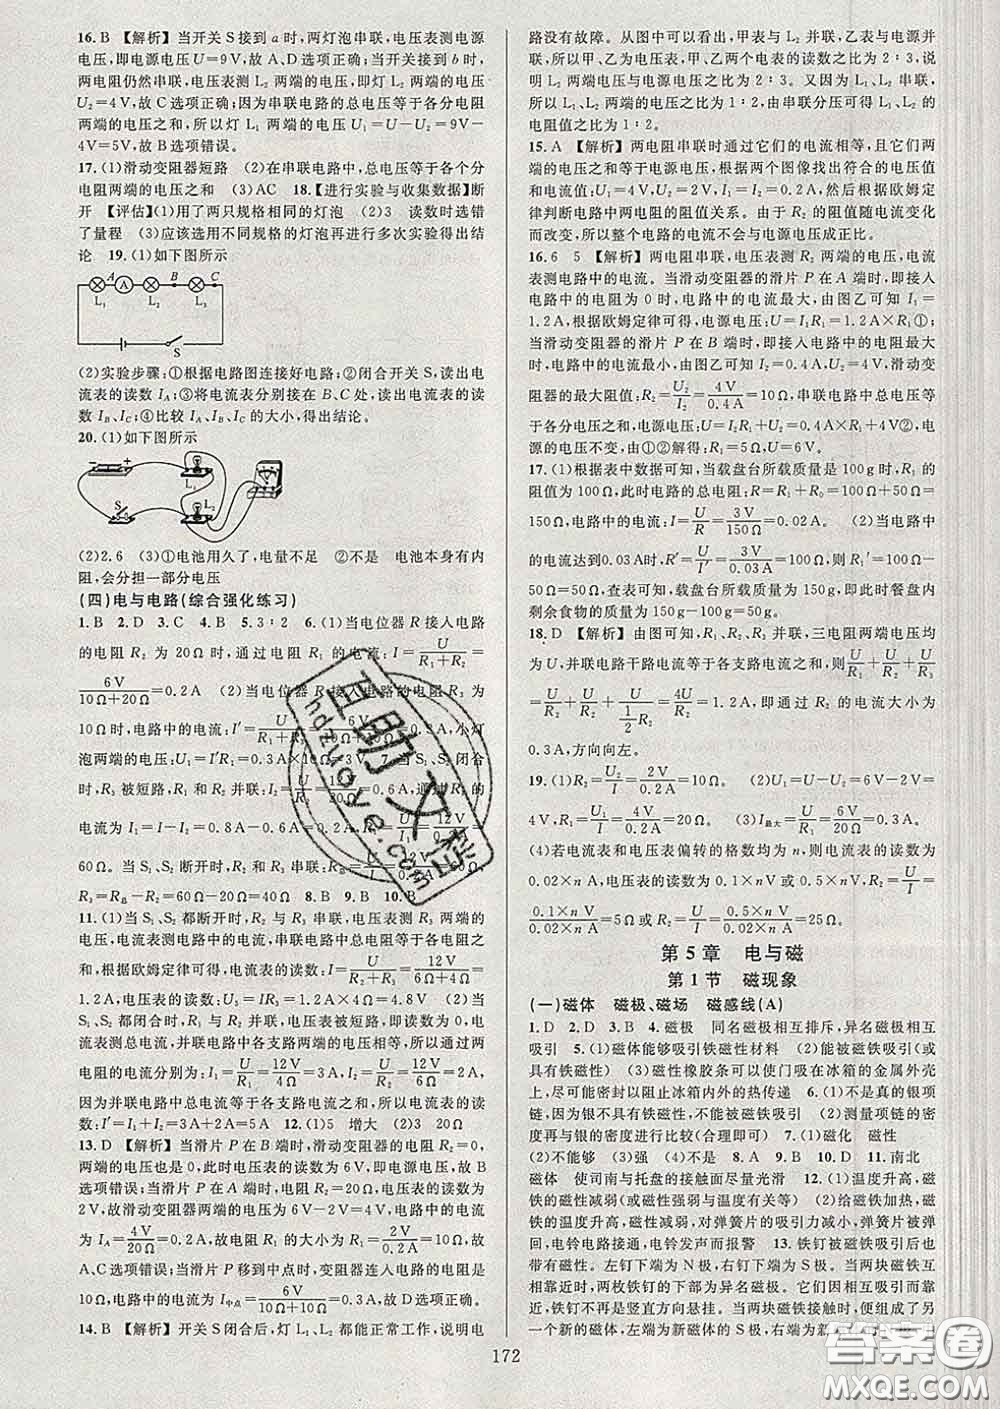 16.B 【解析】当开关S接到a时,两灯泡串联,电压表测电源
电压,即电源电压U=9V,故A、D选项正确;当开关接到b时,
两电阻仍然串联,电压表测L₂两端的电压,即灯L₂两端的电压
U₂=4V,故C选项正确;因为串联电路的总电压等于各分电阻
两端的电压之和,所以灯L₁两端的电压U₁=U-U₂=9V-
4V=5V,故B选项错误。
17.(1)滑动变阻器短路 (2)在串联电路中,总电压等于各个分
电阻两端的电压之和 (3)AC 18.【进行实验与收集数据】断
开 【评估】(1)用了两只规格相同的灯泡 (2)3 读数时选错
了量程 (3)应该选用不同规格的灯泡再进行多次实验得出结
论 19.(1)如下图所示
A B C
L₁ A L₂ L₃
S
(2)实验步骤:①根据电路图连接好电路;②闭合开关S,读出电
流表的读数I_A;③将电流表分别接在B、C处,读出电流表的读
数I_B、I_C;④比较I_A、I_B、I_C的大小,得出结论。
20.(1)如下图所示
L₁
S L₂
(2)2.6 (3)①电池用久了,电量不足 ②不是 电池本身有内
阻,会分担一部分电压
(四)电与电路(综合强化练习)
1.B 2.D 3.C 4.B 5.3:2 6.(1)当电位器R接入电路
的电阻R₂为20Ω时,通过电阻R₁的电流:I=U/(R₁+R₂)=
6V/(10Ω+20Ω)=0.2A (2)当电位器R接入电路的电阻R₃为
10Ω时,电路中的电流:I′=U/(R₁+R₃)=6V/(10Ω+10Ω)=0.3A,小灯
泡两端的电压:U₁=I′R₁=0.3A×10Ω=3V 7.当S₁、S₂闭合
时,R₃被短路,R₁、R₂并联:I₂=U/R₂=12V/20Ω=0.6A,通过R₁的
电流为I₁=I-I₂=0.8A-0.6A=0.2A,R₁=U/I₁=12V/0.2A=
60Ω。当S₁、S₂断开时,R₂和R₃串联:R总=U/I=12V/0.2A=60Ω,
R₃=R总-R₂=60Ω-20Ω=40Ω 8.B 9.B 10.B
11.(1)当S₁、S₂都断开时,R₂与R₃串联,电压表测R₃两端的
电压,电流表测电路中的电流,串联电路中总电阻等于各分电
阻之和,根据欧姆定律可得,电流表的读数:I=U/(R₂+R₃)=12V/(6Ω+4Ω)
=1.2A,电压表的读数:U₃=IR₃=1.2A×4Ω=4.8V (2)当
S₁、S₂都闭合时,R₁与R₂并联,电压表被短路,即读数为0,电流
表测总电流,由并联电路中各支路两端的电压相等,所以通过两
电阻的电流分别为:I₁=U/R₁=12V/4Ω=3A,I₂=U/R₂=12V/6Ω=2A,
因为并联电路中总电流等于各支路电流之和,所以电流表的读
数:I′=I₁+I₂=3A+2A=5A 12.(1)5 增大 (2)3 20Ω
13.D 【解析】当滑片P在B端时,滑动变阻器的电阻R₂=0,
两端的电压为0,此时电压表的读数为6V,即电源电压,故B选
项错误;当滑片P在A端时,电阻R₂=20Ω,此时电压表读数为
2V,故滑动变阻器两端的电压为6V-2V=4V,电路中的电流
为I_A=4V/20Ω=0.2A,故电阻R₁的大小为R₁=2V/0.2A=10Ω,
故A、C选项错误;当滑片P移到中点时,变阻器连入电路的电阻是
10Ω,此时电路中的电流为I中点=6V/(10Ω+10Ω)=0.3A,故D选项正确。
14.B 【解析】开关S闭合后,灯L₁、L₂都能正常工作,说明电
路没有故障。从图中可以看出,甲表与L₂并联,乙表与电源并
联,所以甲、乙为电压表,甲、乙两个电表的读数之比为2:3,说
明L₂两端电压与电源电压之比为2:3。又因为L₁、L₂串联,
所以L₁、L₂两端的电压之比为1:2,由串联分压可得L₁、L₂的
电阻值之比为1:2。
15.A 【解析】两电阻串联时通过它们的电流相等,且它们两
端的电压之和等于电源电压,根据两个图像找出符合的电压值
和电流值:U₁=4V,U₂=2V,I₁=I₂=0.2A,然后根据欧姆定
律判断电路中两电阻的阻值关系。由于R₂的阻值随电流变化
而改变,所以整个电路的电流不会与电源电压成正比。
16.6 5 【解析】两电阻串联,电压表测R₂两端的电压,电流
表测电路中的电流。当滑动变阻器的滑片P在A端时,即接入
电路中的电阻为0时,电路中的电流最大,由图乙可知I₁=
1.2A,根据欧姆定律可得,电源电压:U=I₁R₁=1.2A×R₁①;
当滑动变阻器的滑片P在B端时,即接入电路中的电阻最大
时,电路中的电流最小,由图乙可知I₂=0.4A,U₂=4V,滑动变
阻器的最大阻值:R₂=U₂/I₂=4V/0.4A=10Ω,串联电路中总电压等
于各分电压之和,电源电压:U=I₂R₁+U₂=0.4A×R₁+4V②,电
源的电压不变,由①②解得:R₁=5Ω,U=6V。
17.(1)根据表中数据可知,当载盘台所载质量是100g时,R₁的
阻值为100Ω,此时电路的总电阻:R=R₁+R₀=100Ω+50Ω=
150Ω,电路中的电流:I=U/R=3V/150Ω=0.02A。 (2)当电路中
的电流达到0.03A时,R′=U/I′=3V/0.03A=100Ω,则R₁′=100Ω-
50Ω=50Ω,对照表可知,载盘台所载质量为150g,即此时餐盘内
剩余食物的质量为150g-100g=50g。
18.D 【解析】由图可知,R₁、R₂、R₃并联,三电阻两端电压均
为U,并联电路干路电流等于各支路电流之和,则U/R₁+U/R₂+U/R₃
=U/R₁+U/R₁+U/(½R₁)=4U/R₁=1.2A,即通过R₁的电流大小为
0.3A,方向向左。
19.(1)R₂=U₂/I=2V/0.2A=10Ω。 (2)U₁=U-U₂=6V-2V=
4V,R₁=U₁/I=4V/0.2A=20Ω。 (3)I最大=U/R₁=6V/20Ω=0.3A。
(4)若电流表和电压表偏转的格数均为n,则电流表的读数为
0.02×n A,电压表的读数为0.1×n V或0.5×n V,R₂=U/I=
0.1×n V/0.02×n A=5Ω或R₂=0.5×n V/0.02×n A=25Ω。
第5章 电与磁
第1节 磁现象
(一)磁体 磁极、磁场 磁感线(A)
1.D 2.D 3.B 4.磁极 同名磁极相互排斥,异名磁极相互
吸引 5.(1)磁体能够吸引铁磁性材料 (2)能被磁铁吸引(或
具有铁磁性) (3)磁性橡胶条可以使门吸在冰箱的金属外壳
上,尽可能密封以阻止冰箱内外的热传递 6.(1)不是真的银项
链,因为银不具有铁磁性,不能被磁铁吸引 (2)测量项链的密
度再与银的密度进行比较(合理即可) 7.(1)磁化 磁性
(2)不能够 (3)强 (4)不是 8.A 9.B 10.D 11.南北
磁体 使司南与托盘的接触面尽量光滑 12.(1)温度升高,磁
铁的磁性减弱(或磁性强弱与温度有关等) (2)给磁铁加热,磁
铁的温度升高,磁性减弱,对弹簧片的吸引力减小,弹簧片被弹
回,电铃电路接通,电铃发声而报警 13.铁钉被磁铁吸引后也
带有磁性。左钉下端为N极,右钉下端为S极。当两块磁铁互
相靠近时,两枚铁钉的下部为异名磁极。它们因相互吸引而靠
近,铁钉不再是竖直方向悬挂。当两块磁铁接触时,便组成了另
一个新的磁体,左端为新磁体的S极,右端为新
172
互助文档
hdzuoye.com
答案圈
MXQE.COM